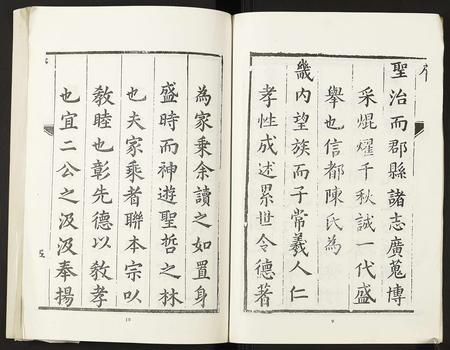 聖治而郡縣諸志廣蒐博
采焜燿千秋誠一代盛
舉也信都陳氏為
畿内望族而子常羲人仁
孝性成述累世令德著
9
為家乗余讀之如置身
盛時而神遊聖哲之林
也夫家乘者聯本宗以
敎睦也彰先德以敎孝
也宜二公之汲汲奉揚
10